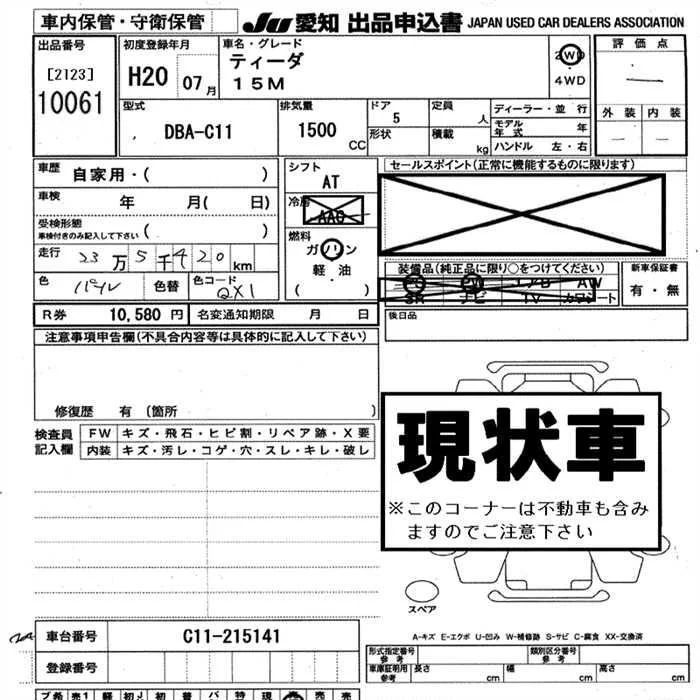 車内保管・守衛保管
JU 愛知 出品申込書 JAPAN USED CAR DEALERS ASSOCIATION
出品番号
[2123]
10061
初度登録年月
H20 07月
車名・グレード
ティーダ
15M
2WD
・
4WD
評価点
外装 内装
型式
DBA-C11
排気量
1500 CC
ドア 5
形状
定員 人
積載 kg
ディーラー・並行
モデル年式 年
ハンドル 左・右
車歴 自家用・( )
車検 年 月( 日)
受検形態
車検付きのみ記入して下さい ( )
走行 23万5千420km
色 パール 色替 色コード QX1
シフト
AT
冷房
AAC
燃料
ガソリン
軽・油
( )
セールスポイント(正常に機能するものに限ります)
装備品(純正品に限り○をつけてください)
PS PW エアB AW
SR ナビ TV カワシート
新車保証書
有・無
後日品
R券 10,580 円 名変通知期限 月 日
注意事項申告欄(不具合内容等は具体的に記入して下さい)
修復歴 有 (箇所 )
検査員記入欄
FW キズ・飛石・ヒビ割・リペア跡・X要
内装 キズ・汚レ・コゲ・穴・スレ・キレ・破レ
現状車
※このコーナーは不動車も含み
ますのでご注意下さい
スペア
A-キズ E-エクボ U-凹み W-補修跡 S-サビ C-腐食 XX-交換済
車台番号 C11-215141
登録番号
形式指定番号
参考
類別区分番号
参考
車庫証明用
参考
長さ cm 幅 cm 高さ cm